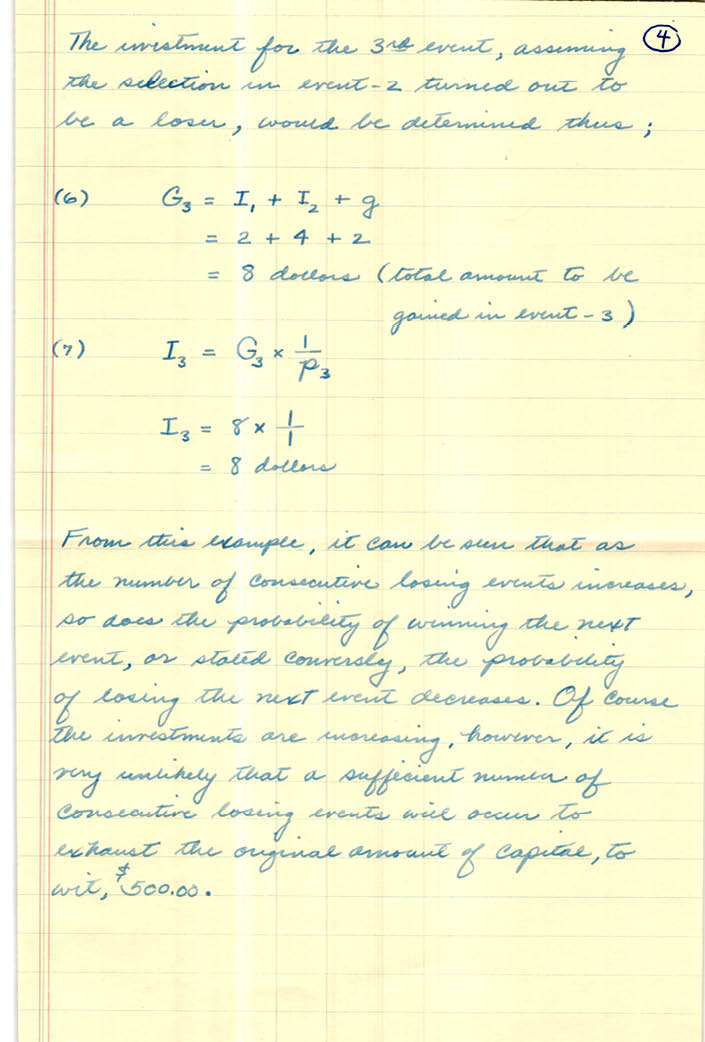 4
The investment for the 3rd event, assuming
the selection in event-2 turned out to
be a loser, would be determined thus;
(6) G3 = I1 + I2 + g
= 2 + 4 + 2
= 8 dollars (total amount to be
gained in event-3)
(7) I3 = G3 x 1/P3
I3 = 8 x 1/1
= 8 dollars
From this example, it can be seen that as
the number of consecutive losing events increases,
so does the probability of winning the next
event, or stated conversly, the probability
of losing the next event decreases. Of course
the investments are increasing, however, it is
very unlikely that a sufficient number of
consecutive losing events will occur to
exhaust the original amount of capital, to
wit, $500.00.